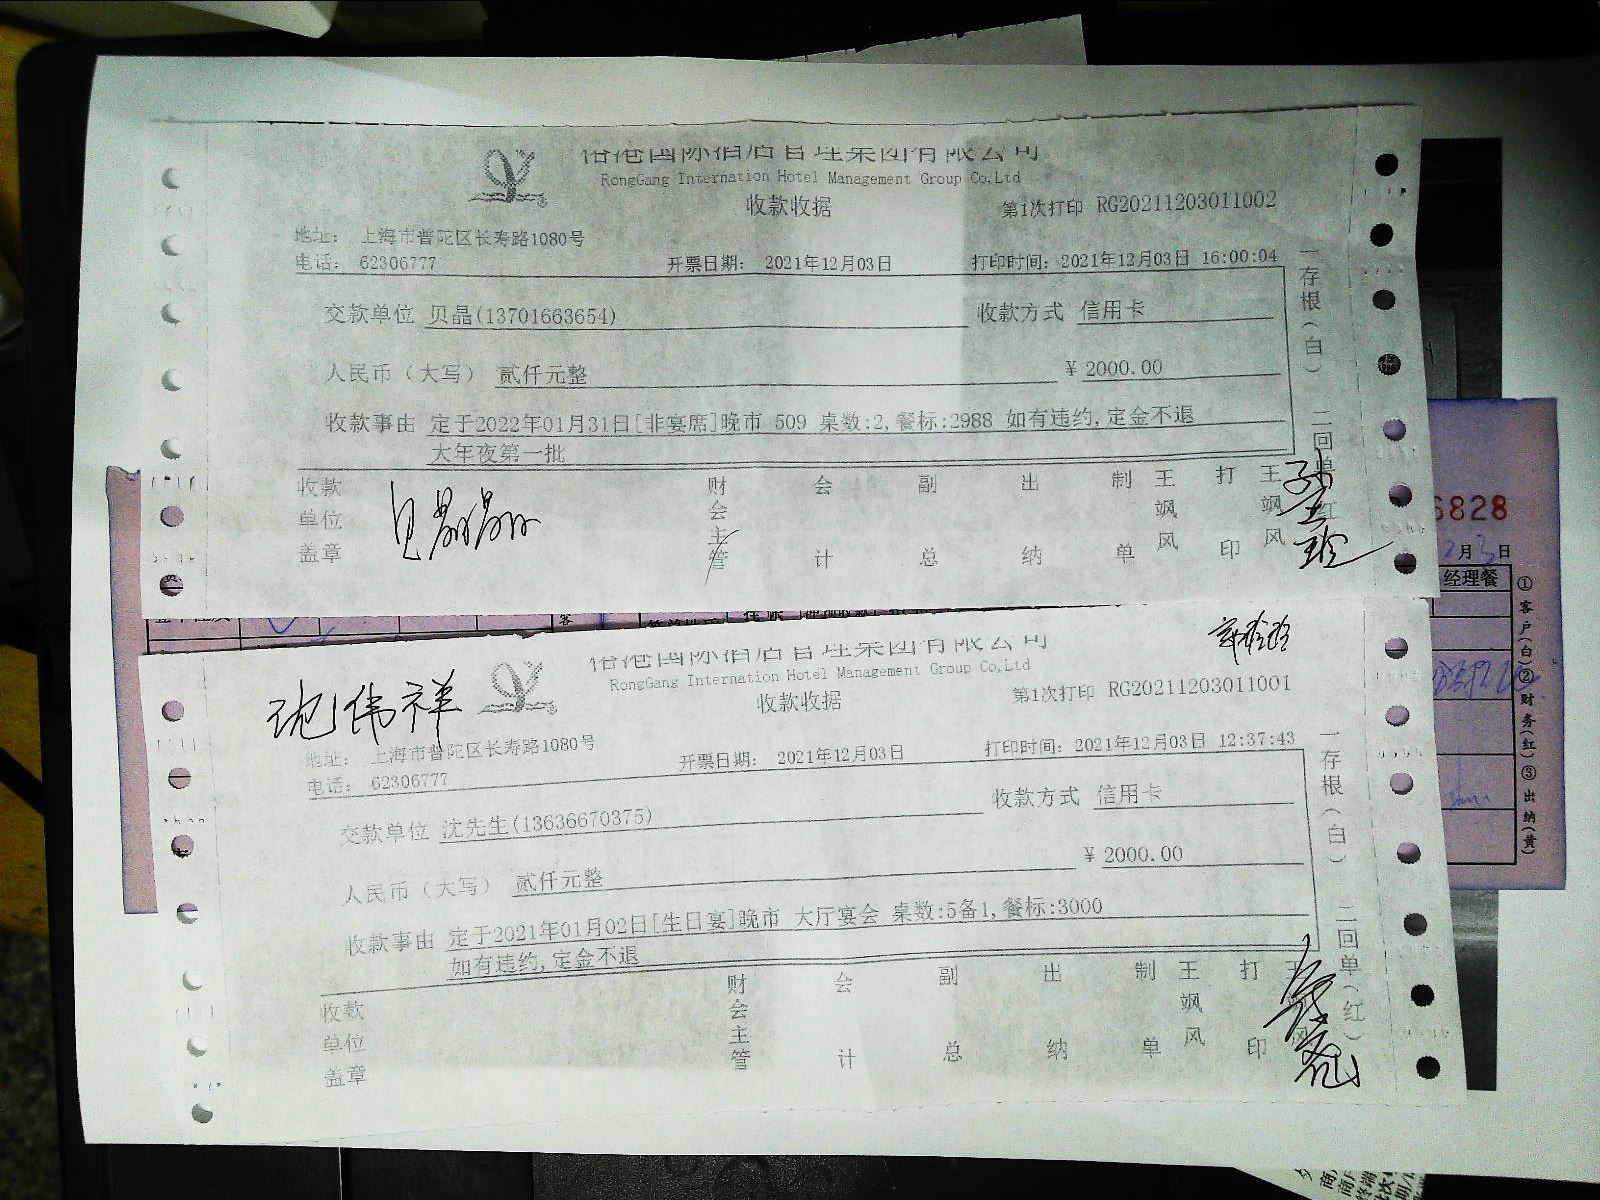 国际酒店管理集团有限公司
RongGang Internation Hotel Management Group Co,Ltd
收款收据
第1次打印 RG20211203011002
地址： 上海市普陀区长寿路1080号
电话： 62306777
开票日期： 2021年12月03日
打印时间：2021年12月03日 16:00:04
交款单位 贝晶(13701663654)
收款方式 信用卡
人民币（大写） 贰仟元整
￥2000.00
收款事由 定于2022年01月31日[非宴席]晚市 509 桌数:2,餐标:2988 如有违约,定金不退
大年夜第一批
收款单位盖章
财会主管
会计
副总
出纳
制单
王飒风
打印
王飒风
一存根（白） 二回单（红
6828
2月3日
经理餐
①客户（白）②财务（红）③出纳（黄）
国际酒店管理集团有限公司
RongGang Internation Hotel Management Group Co,Ltd
收款收据
第1次打印 RG20211203011001
地址： 上海市普陀区长寿路1080号
电话： 62306777
开票日期： 2021年12月03日
打印时间：2021年12月03日 12:37:43
交款单位 沈先生(13636670375)
收款方式 信用卡
人民币（大写） 贰仟元整
￥2000.00
收款事由 定于2021年01月02日[生日宴]晚市 大厅宴会 桌数:5备1,餐标:3000
如有违约,定金不退
收款单位盖章
财会主管
会计
副总
出纳
制单
王飒风
打印
一存根（白） 二回单（红）